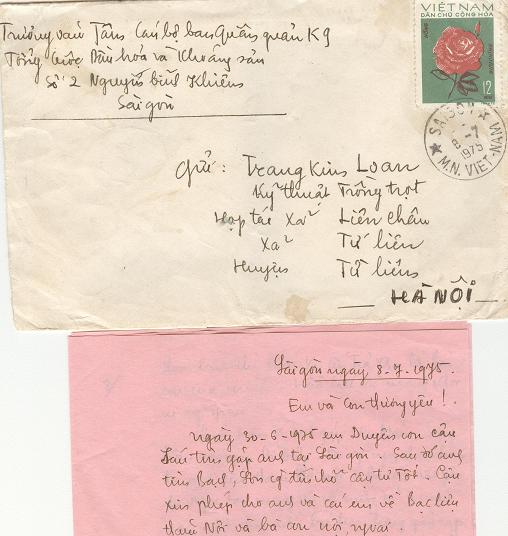 Trương văn Tân Cán bộ ban Quân quản K9
Tổng Cục Dầu hóa và Khoáng sản
Số 2 Nguyễn bỉnh Khiêm
Sàigòn
VIỆT NAM
DÂN CHỦ CỘNG HÒA
12
SAIGON
8-7
1975
M.N. VIET-NAM
Gửi: Trang Kim Loan
Kỹ thuật Trồng trọt
Hợp tác Xã Liên Châu
Xã Tứ liên
Huyện Từ liêm
HÀ NỘI
Sàigòn ngày 8.7.1975.
Em và Con thương yêu!
Ngày 30-6-1975 em Duyên con cậu
Sáu tìm gặp anh tại Sàigòn. Sau đó anh
tìm Bạch, Sơn
xin phép cho anh và các em về Bạc liêu
thăm Nội và bà con nội, ngoại.